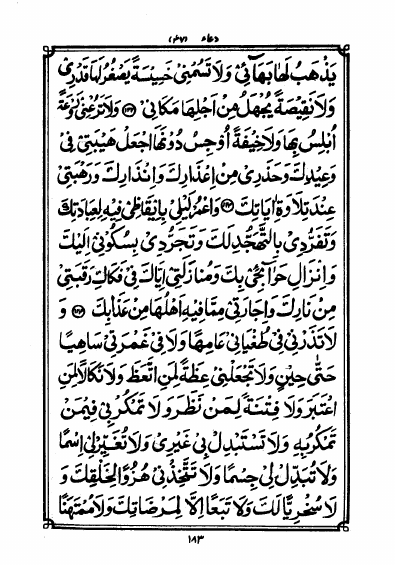 دعاء (۴۷)
يَذْهَبُ لَهَا بَهَائِي وَلَا تَسُمْنِي خَسِيسَةً يَصْغُرُ لَهَا قَدْرِي
وَلَا نَقِيصَةً يُجْهَلُ مِنْ أَجْلِهَا مَكَانِي وَلَا تَرُعْنِي رَوْعَةً
أُبْلِسُ بِهَا وَلَا خِيفَةً أُوجِسُ دُونَهَا اجْعَلْ هَيْبَتِي فِي
وَعِيدِكَ وَحَذَرِي مِنْ إِعْذَارِكَ وَإِنْذَارِكَ وَرَهْبَتِي
عِنْدَ تِلَاوَةِ آيَاتِكَ وَاعْمُرْ لَيْلِي بِإِيقَاظِي فِيهِ لِعِبَادَتِكَ
وَتَفَرُّدِي بِالتَّهَجُّدِ لَكَ وَتَجَرُّدِي بِسُكُونِي إِلَيْكَ
وَإِنْزَالِ حَوَائِجِي بِكَ وَمُنَازَلَتِي إِيَّاكَ فِي فَكَاكِ رَقَبَتِي
مِنْ نَارِكَ وَإِجَارَتِي مِمَّا فِيهِ أَهْلُهَا مِنْ عَذَابِكَ وَ
لَا تَذَرْنِي فِي طُغْيَانِي عَامِهًا وَلَا فِي غَمْرَتِي سَاهِيًا
حَتَّى حِينٍ وَلَا تَجْعَلْنِي عِظَةً لِمَنِ اتَّعَظَ وَلَا نَكَالًا لِمَنِ
اعْتَبَرَ وَلَا فِتْنَةً لِمَنْ نَظَرَ وَلَا تَمْكُرْ بِي فِيمَنْ
تَمْكُرُ بِهِ وَلَا تَسْتَبْدِلْ بِي غَيْرِي وَلَا تُغَيِّرْ لِي اسْمًا
وَلَا تُبَدِّلْ لِي جِسْمًا وَلَا تَتَّخِذْنِي هُزُوًا لِخَلْقِكَ وَ
لَا سُخْرِيًّا لَكَ وَلَا تَبَعًا إِلَّا لِمَرْضَاتِكَ وَلَا مُمْتَهَنًا
۱۸۳